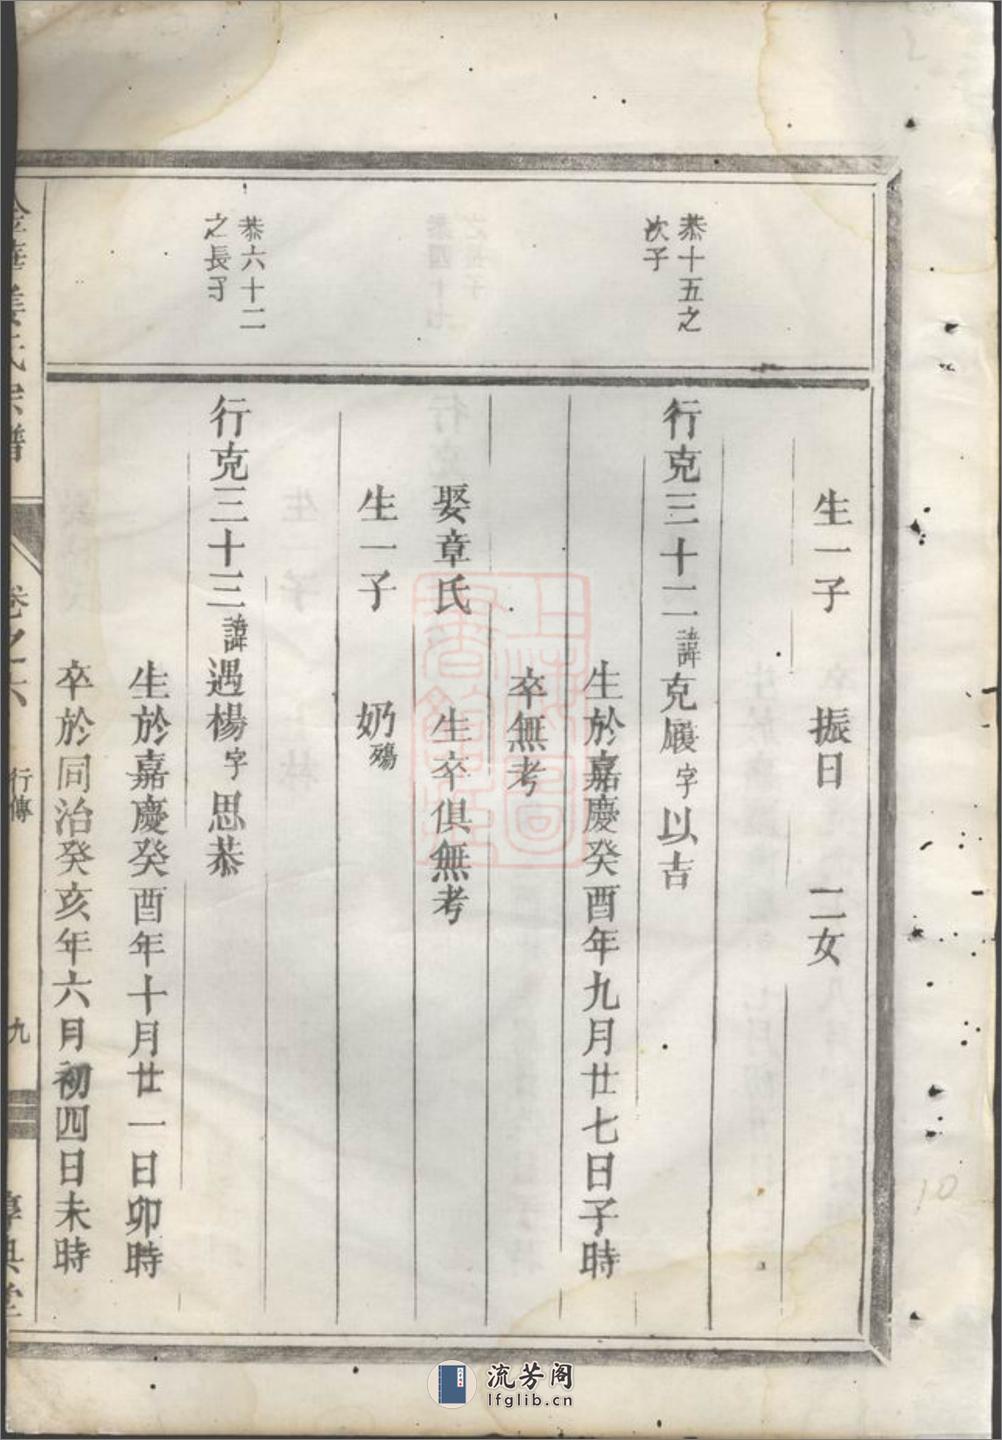 生一子 振日 二女
恭十五之
次子
行克三十二諱克履字以吉
生於嘉慶癸酉年九月廿七日子時
卒無考
娶章氏 生卒俱無考
生一子 奶殤
恭六十二
之長子
行克三十三諱遇楊字思恭
生於嘉慶癸酉年十月廿一日卯時
卒於同治癸亥年六月初四日未時
金華姜氏宗譜 卷之六 行傳 九
上海圖書館藏
10
流芳阁
lfglib.cn